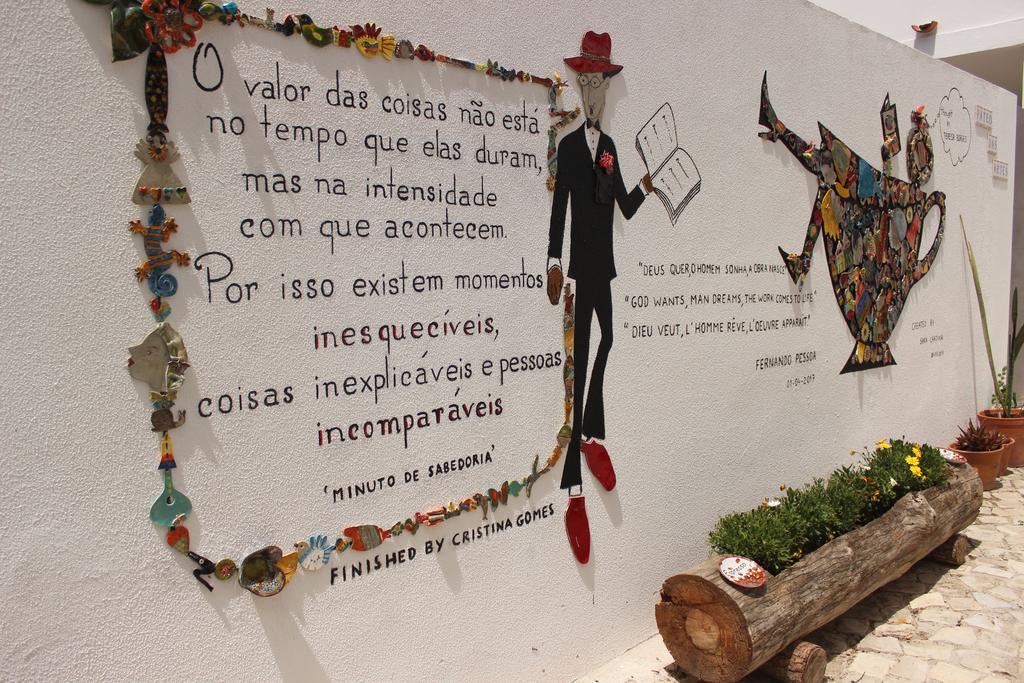 O valor das coisas não está
no tempo que elas duram,
mas na intensidade
com que acontecem.
Por isso existem momentos
inesquecíveis,
coisas inexplicáveis e pessoas
incomparáveis
'MINUTO DE SABEDORIA'
FINISHED BY CRISTINA GOMES
"DEUS QUER, O HOMEM SONHA, A OBRA NASCE
"GOD WANTS, MAN DREAMS, THE WORK COMES TO LIFE"
"DIEU VEUT, L'HOMME RÊVE, L'OEUVRE APPARAIT"
FERNANDO PESSOA
01-04-2017
CREATED BY
SARA
Thought
by
TERESA
PATEO
DAS
ARTES